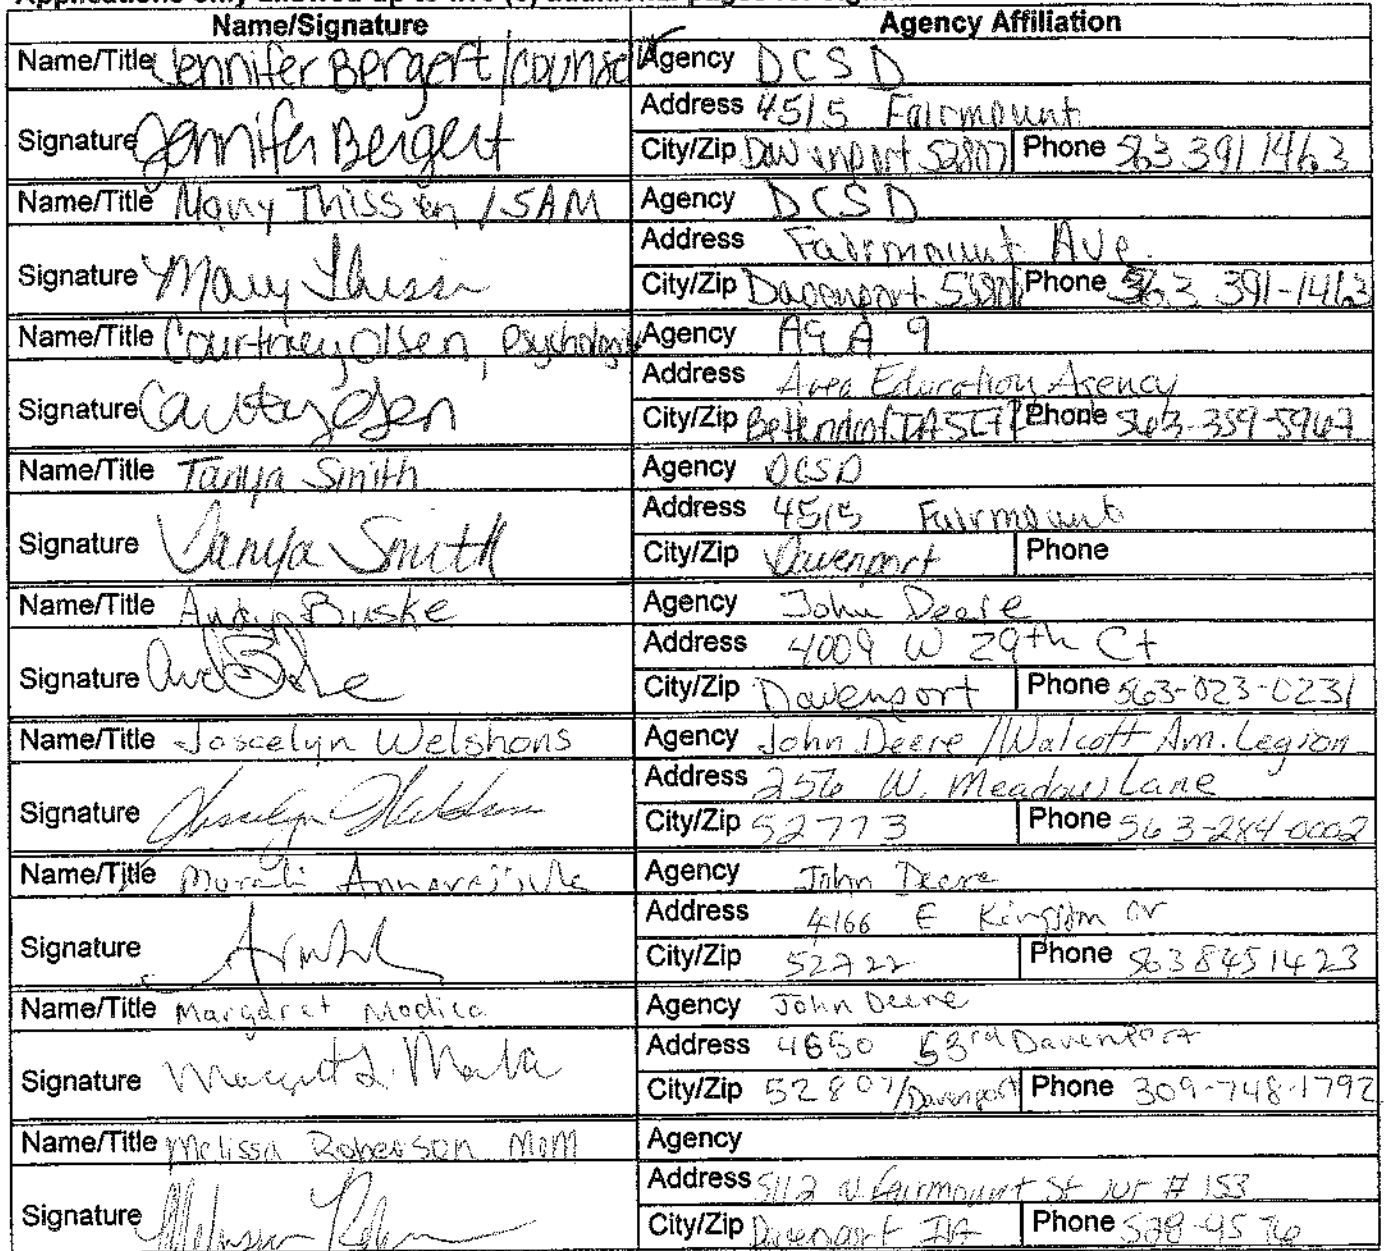 Name/Signature Agency Affiliation
Name/Title Jennifer Bergert/counsel Agency DCSD
Signature Jennifer Bergert Address 4515 Fairmount
City/Zip Davenport 52807 Phone 563 391 1463
Name/Title Mary Thissen / SAM Agency DCSD
Signature Mary Address Fairmount Ave.
City/Zip Davenport Phone 563 391-1463
Name/Title Courtney Olsen, Psychologis Agency AEA 9
Signature Courtney Olsen Address Area Education Agency
City/Zip Bettendorf IA Phone 563-359-5967
Name/Title Tanya Smith Agency DCSD
Signature Tanya Smith Address 4515 Fairmount
City/Zip Davenport Phone
Name/Title Buske Agency John Deere
Signature Address 4009 W 29th Ct
City/Zip Davenport Phone
Name/Title Joscelyn Welshons Agency John Deere /Walcott Am. Legion
Signature Joscelyn Address W. Meadow Lane
City/Zip 52773 Phone 563-284-0002
Name/Title Agency John Deere
Signature Address 4166 E Kingston Dr
City/Zip 52722 Phone 563 845 1423
Name/Title Margaret Modica Agency John Deere
Signature Address 4650 53rd Davenport
City/Zip 52807/Davenport Phone 309-748-1792
Name/Title Melissa Roberson Mom Agency
Signature Address 5112 N Fairmount St # 153
City/Zip Davenport IA Phone